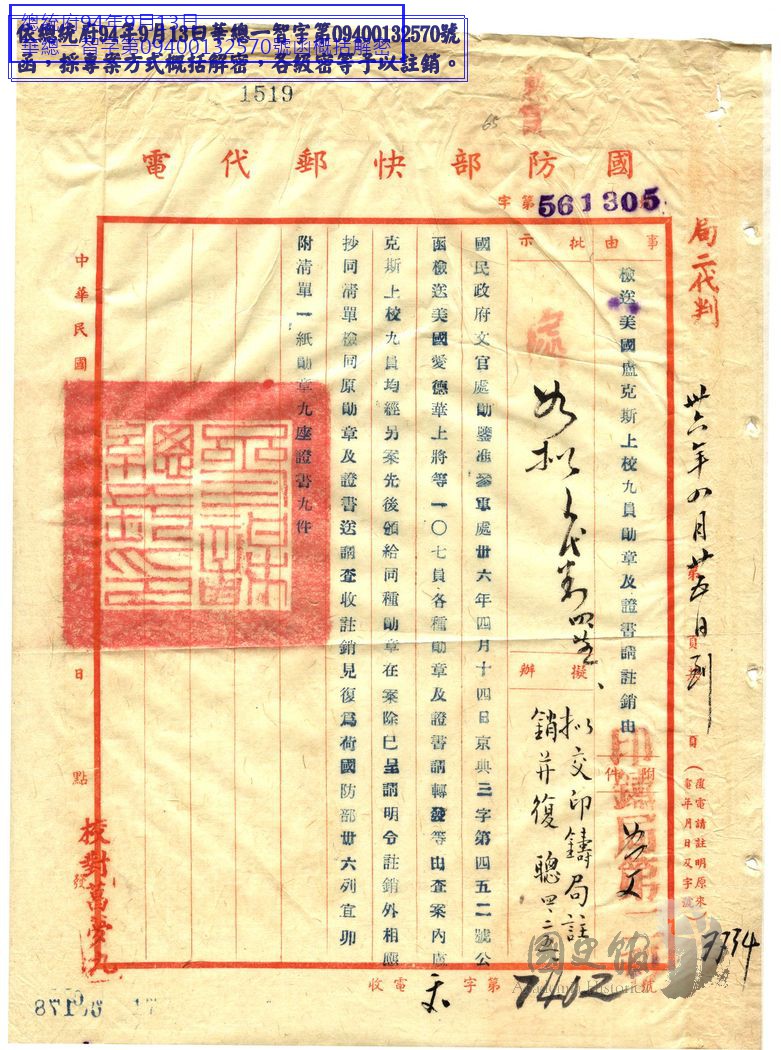 總統府94年9月13日
華總一智字第09400132570號函概括解密
依總統府94年9月13日華總一智字第09400132570號
函，採專案方式概括解密，各級密等予以註銷。
1519
65
國防部快郵代電
字第561305
局二代判
卅六年四月廿五日到
事由
檢送美國盧克斯上校九員勛章及證書請註銷由
附件
批示
如擬
擬辦
擬交印鑄局註
銷并復
國民政府文官處勛鑒准參軍處卅六年四月十四日京典三字第四五二號公
函檢送美國愛德華上將等一〇七員各種勛章及證書請轉發等由查案內盧
克斯上校九員均經另案先後頒給同種勛章在案除已呈請明令註銷外相應
抄同清單檢同原勛章及證書送請查收註銷見復為荷國防部卅六列宜卯
附清單一紙勛章九座證書九件
中華民國
日
點
發
校對
（復電請註明原來
電年月日及字號）
收電字第
7402
號
國史館
Academia Historica